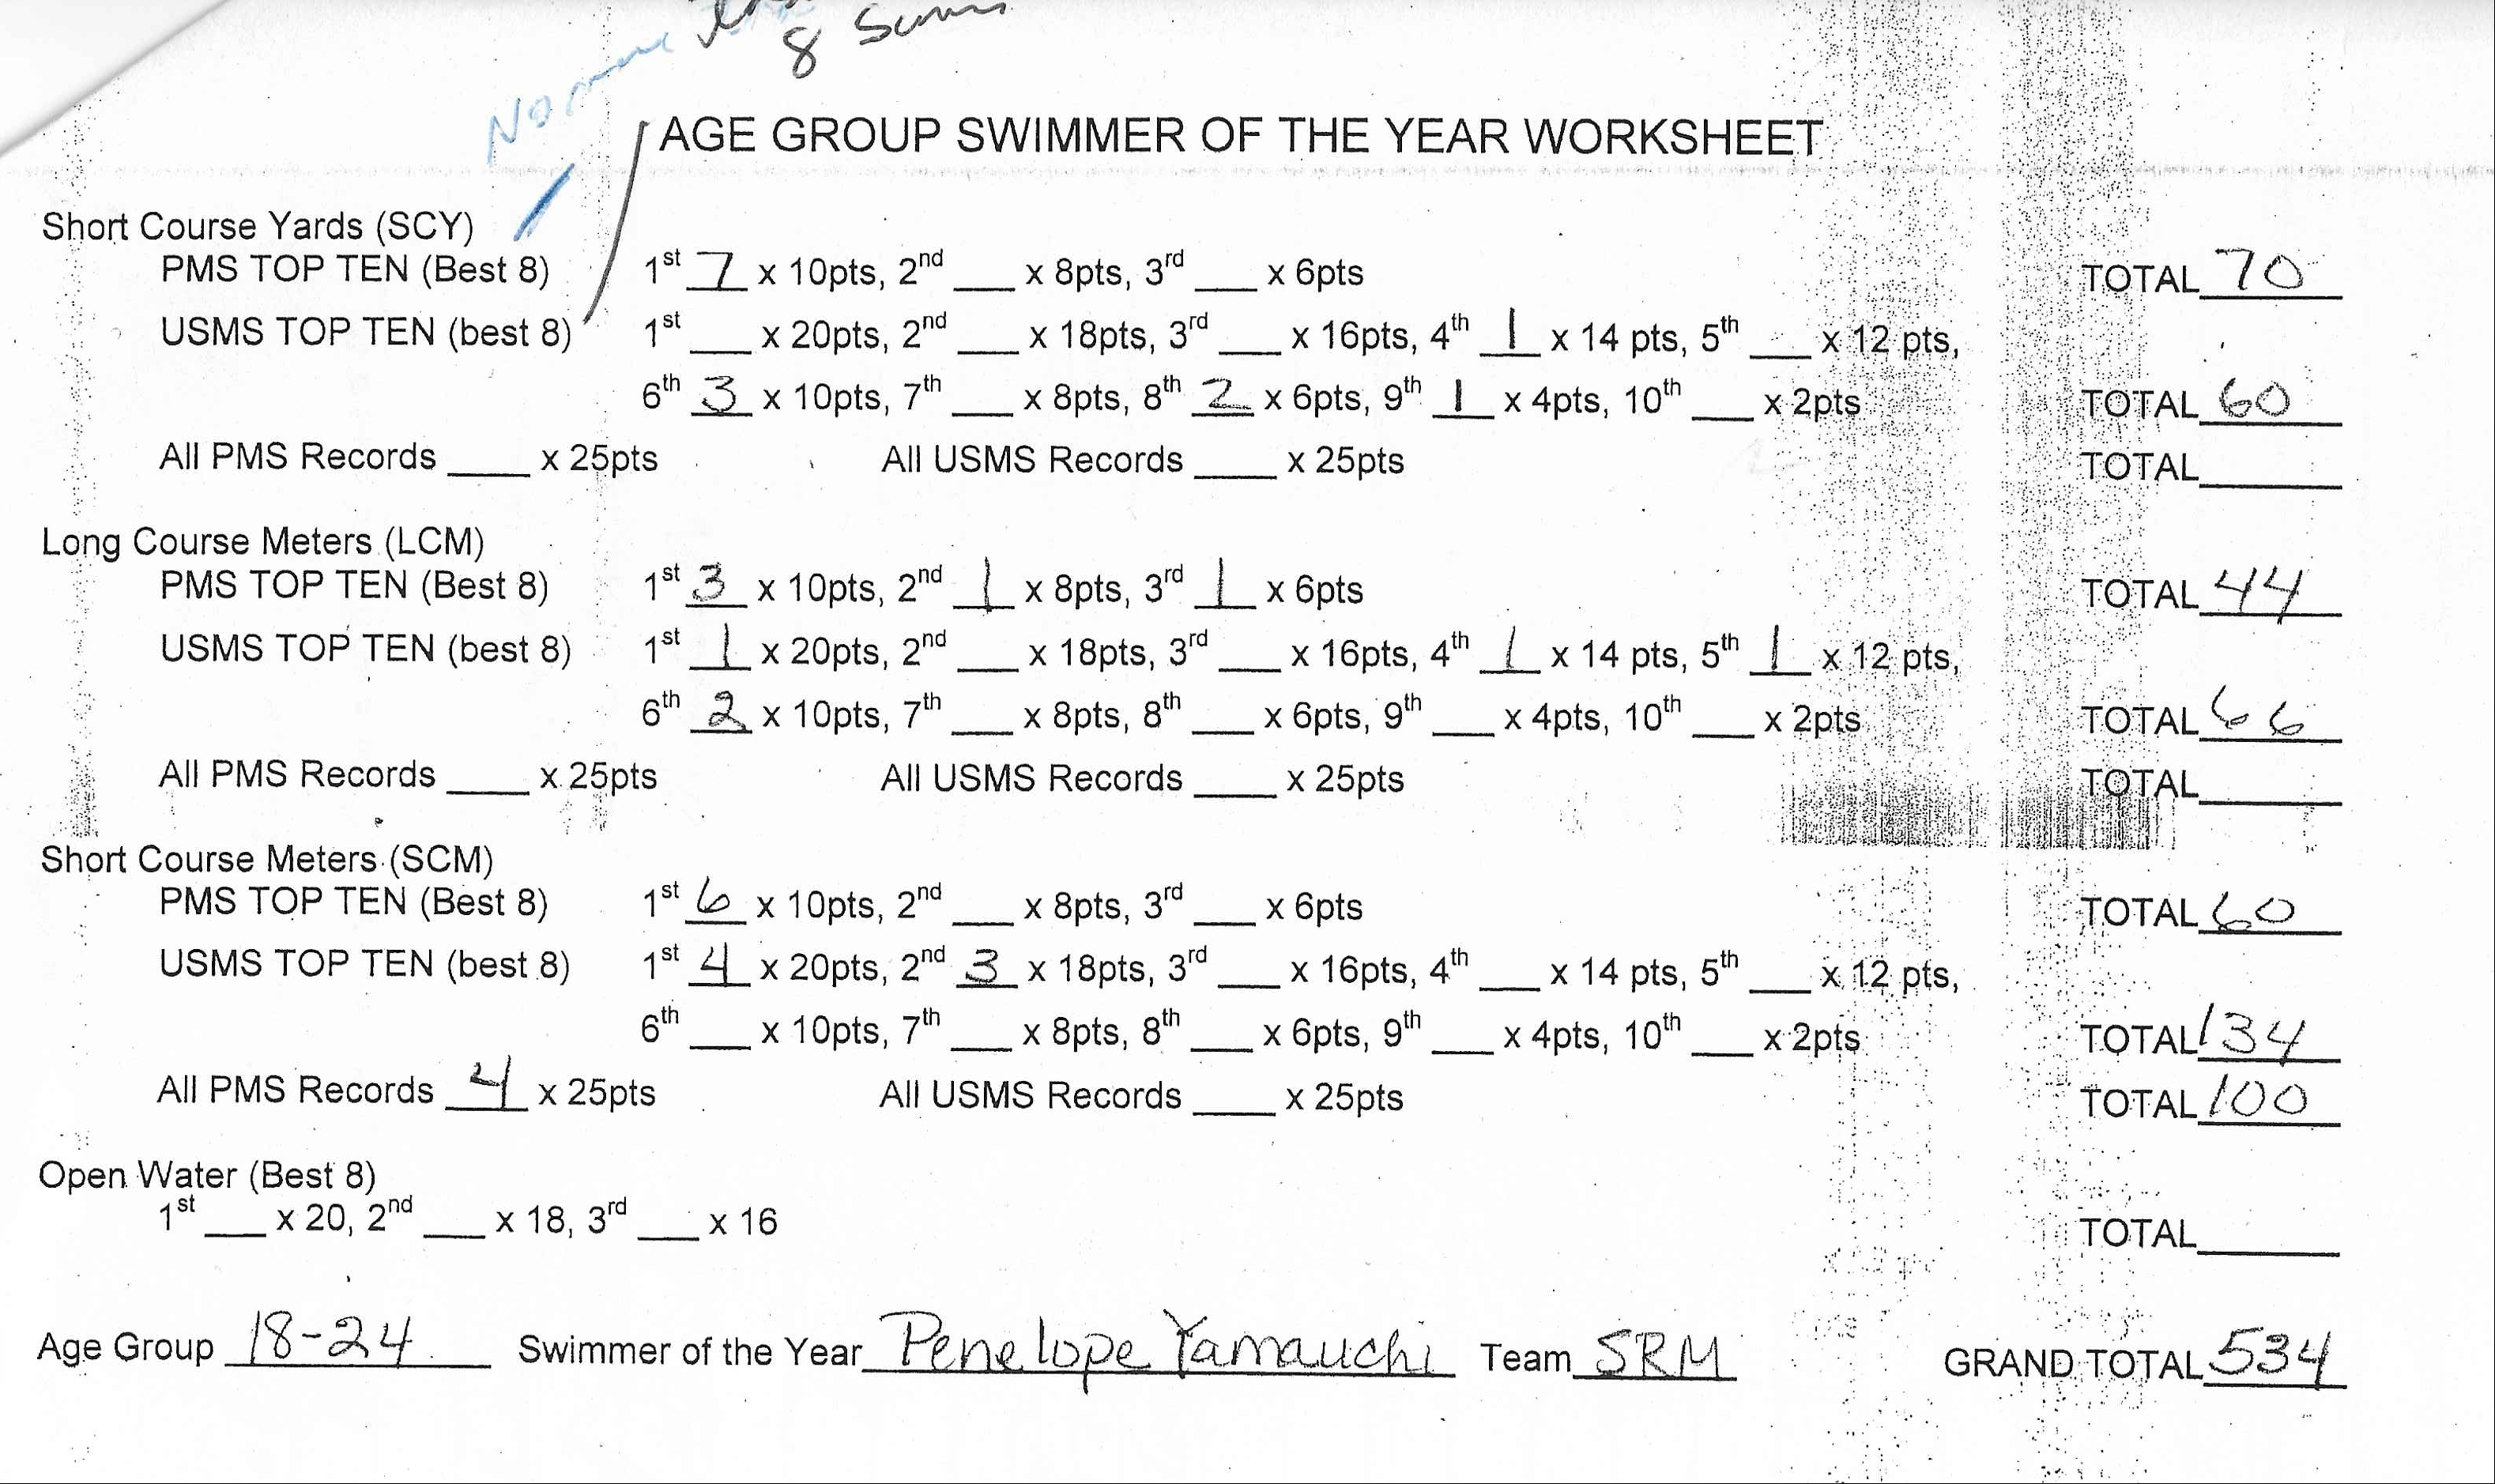 No more
8
AGE GROUP SWIMMER OF THE YEAR WORKSHEET
Short Course Yards (SCY)
PMS TOP TEN (Best 8) 1st 7 x 10pts, 2nd ___ x 8pts, 3rd ___ x 6pts TOTAL 70
USMS TOP TEN (best 8) 1st ___ x 20pts, 2nd ___ x 18pts, 3rd ___ x 16pts, 4th 1 x 14 pts, 5th ___ x 12 pts,
6th 3 x 10pts, 7th ___ x 8pts, 8th 2 x 6pts, 9th 1 x 4pts, 10th ___ x 2pts TOTAL 60
All PMS Records ___ x 25pts All USMS Records ___ x 25pts TOTAL ___
Long Course Meters (LCM)
PMS TOP TEN (Best 8) 1st 3 x 10pts, 2nd 1 x 8pts, 3rd 1 x 6pts TOTAL 44
USMS TOP TEN (best 8) 1st 1 x 20pts, 2nd ___ x 18pts, 3rd ___ x 16pts, 4th 1 x 14 pts, 5th 1 x 12 pts,
6th 2 x 10pts, 7th ___ x 8pts, 8th ___ x 6pts, 9th ___ x 4pts, 10th ___ x 2pts TOTAL 66
All PMS Records ___ x 25pts All USMS Records ___ x 25pts TOTAL ___
Short Course Meters (SCM)
PMS TOP TEN (Best 8) 1st 6 x 10pts, 2nd ___ x 8pts, 3rd ___ x 6pts TOTAL 60
USMS TOP TEN (best 8) 1st 4 x 20pts, 2nd 3 x 18pts, 3rd ___ x 16pts, 4th ___ x 14 pts, 5th ___ x 12 pts,
6th ___ x 10pts, 7th ___ x 8pts, 8th ___ x 6pts, 9th ___ x 4pts, 10th ___ x 2pts TOTAL 134
All PMS Records 4 x 25pts All USMS Records ___ x 25pts TOTAL 100
Open Water (Best 8)
1st ___ x 20, 2nd ___ x 18, 3rd ___ x 16 TOTAL ___
Age Group 18-24 Swimmer of the Year Penelope Yamauchi Team SRM GRAND TOTAL 534